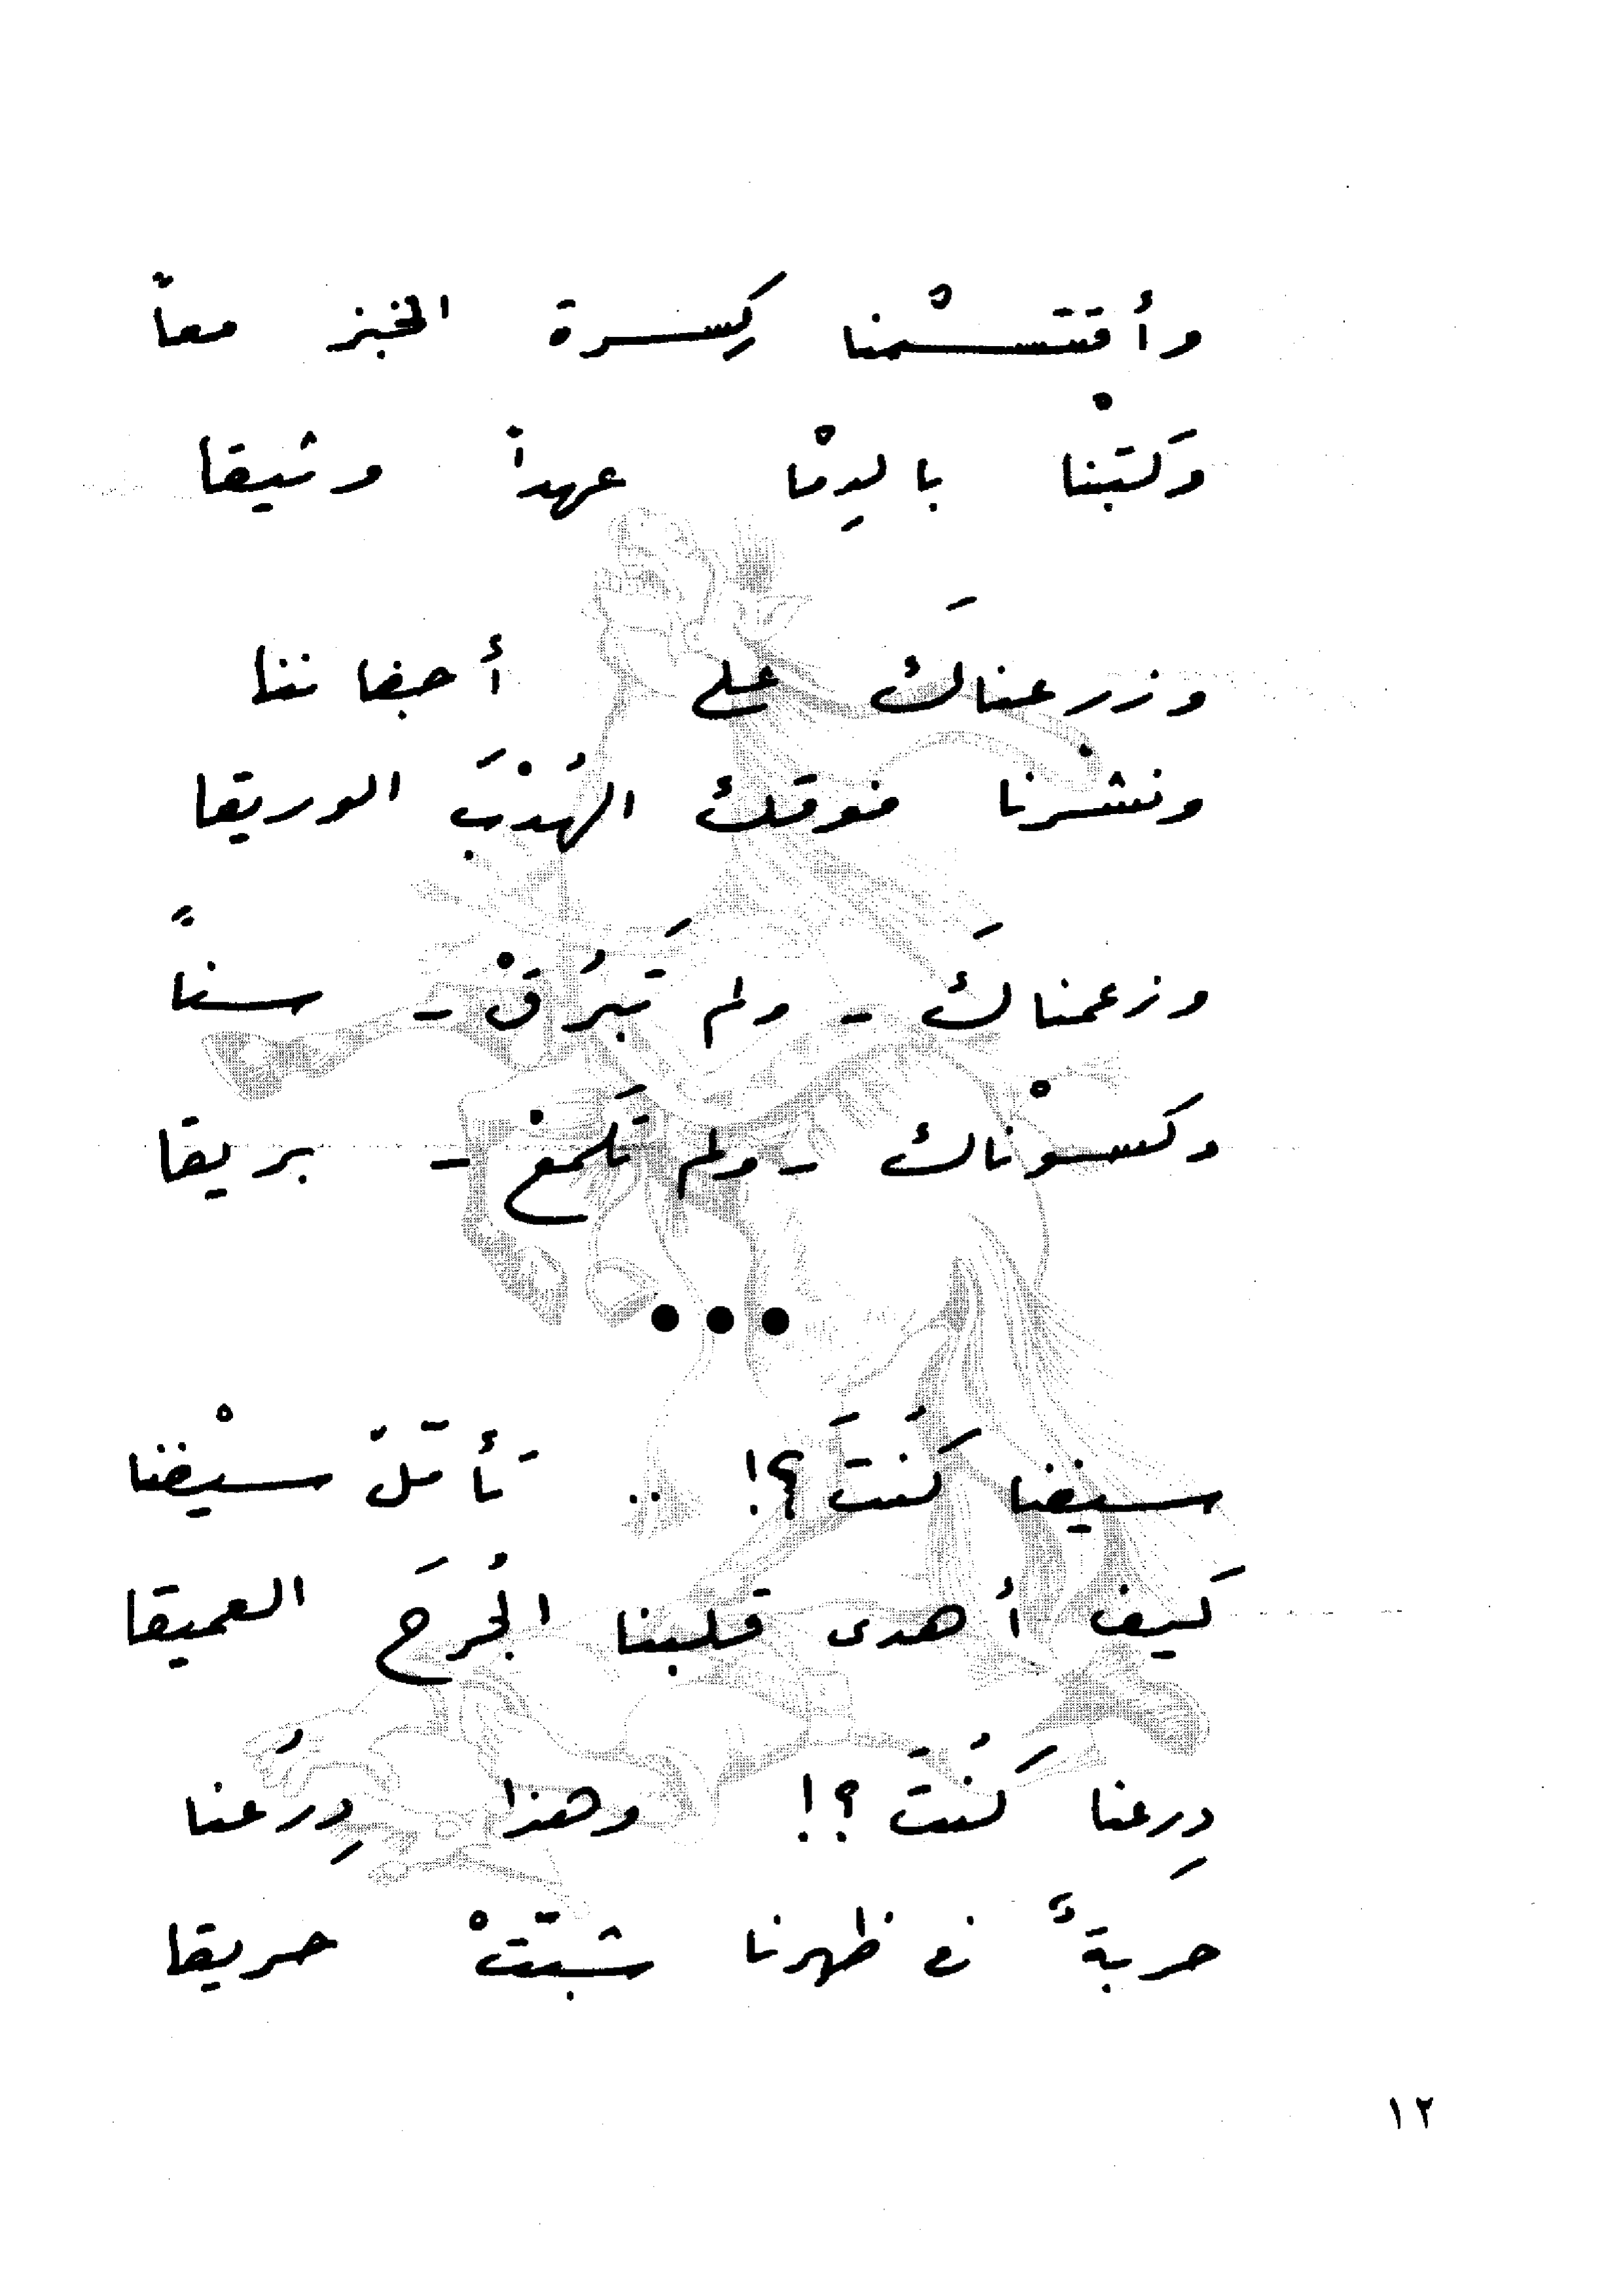 وأقتسْمنا كِسرة الخبز معاً
وَكتبْنا بالدِمْا عهداً وثيقا
وزرعناكَ على أجفاننا
ونشرنا فوقك الهُدْبَ الوريقا
وزعمناكَ - ولم تَبرُقْ - سناً
وكسوْناك - ولم تَلمع - بريقا
•••
سيفنا كُنتَ ؟! .. تأمّلْ سيْفنا
كَيف أهدى قلبنا الجُرحَ العميقا
دِرعنا كُنتَ ؟! وهذا دِرُعنا
حربةٌ في ظهرنا شبّتْ حريقا
١٢